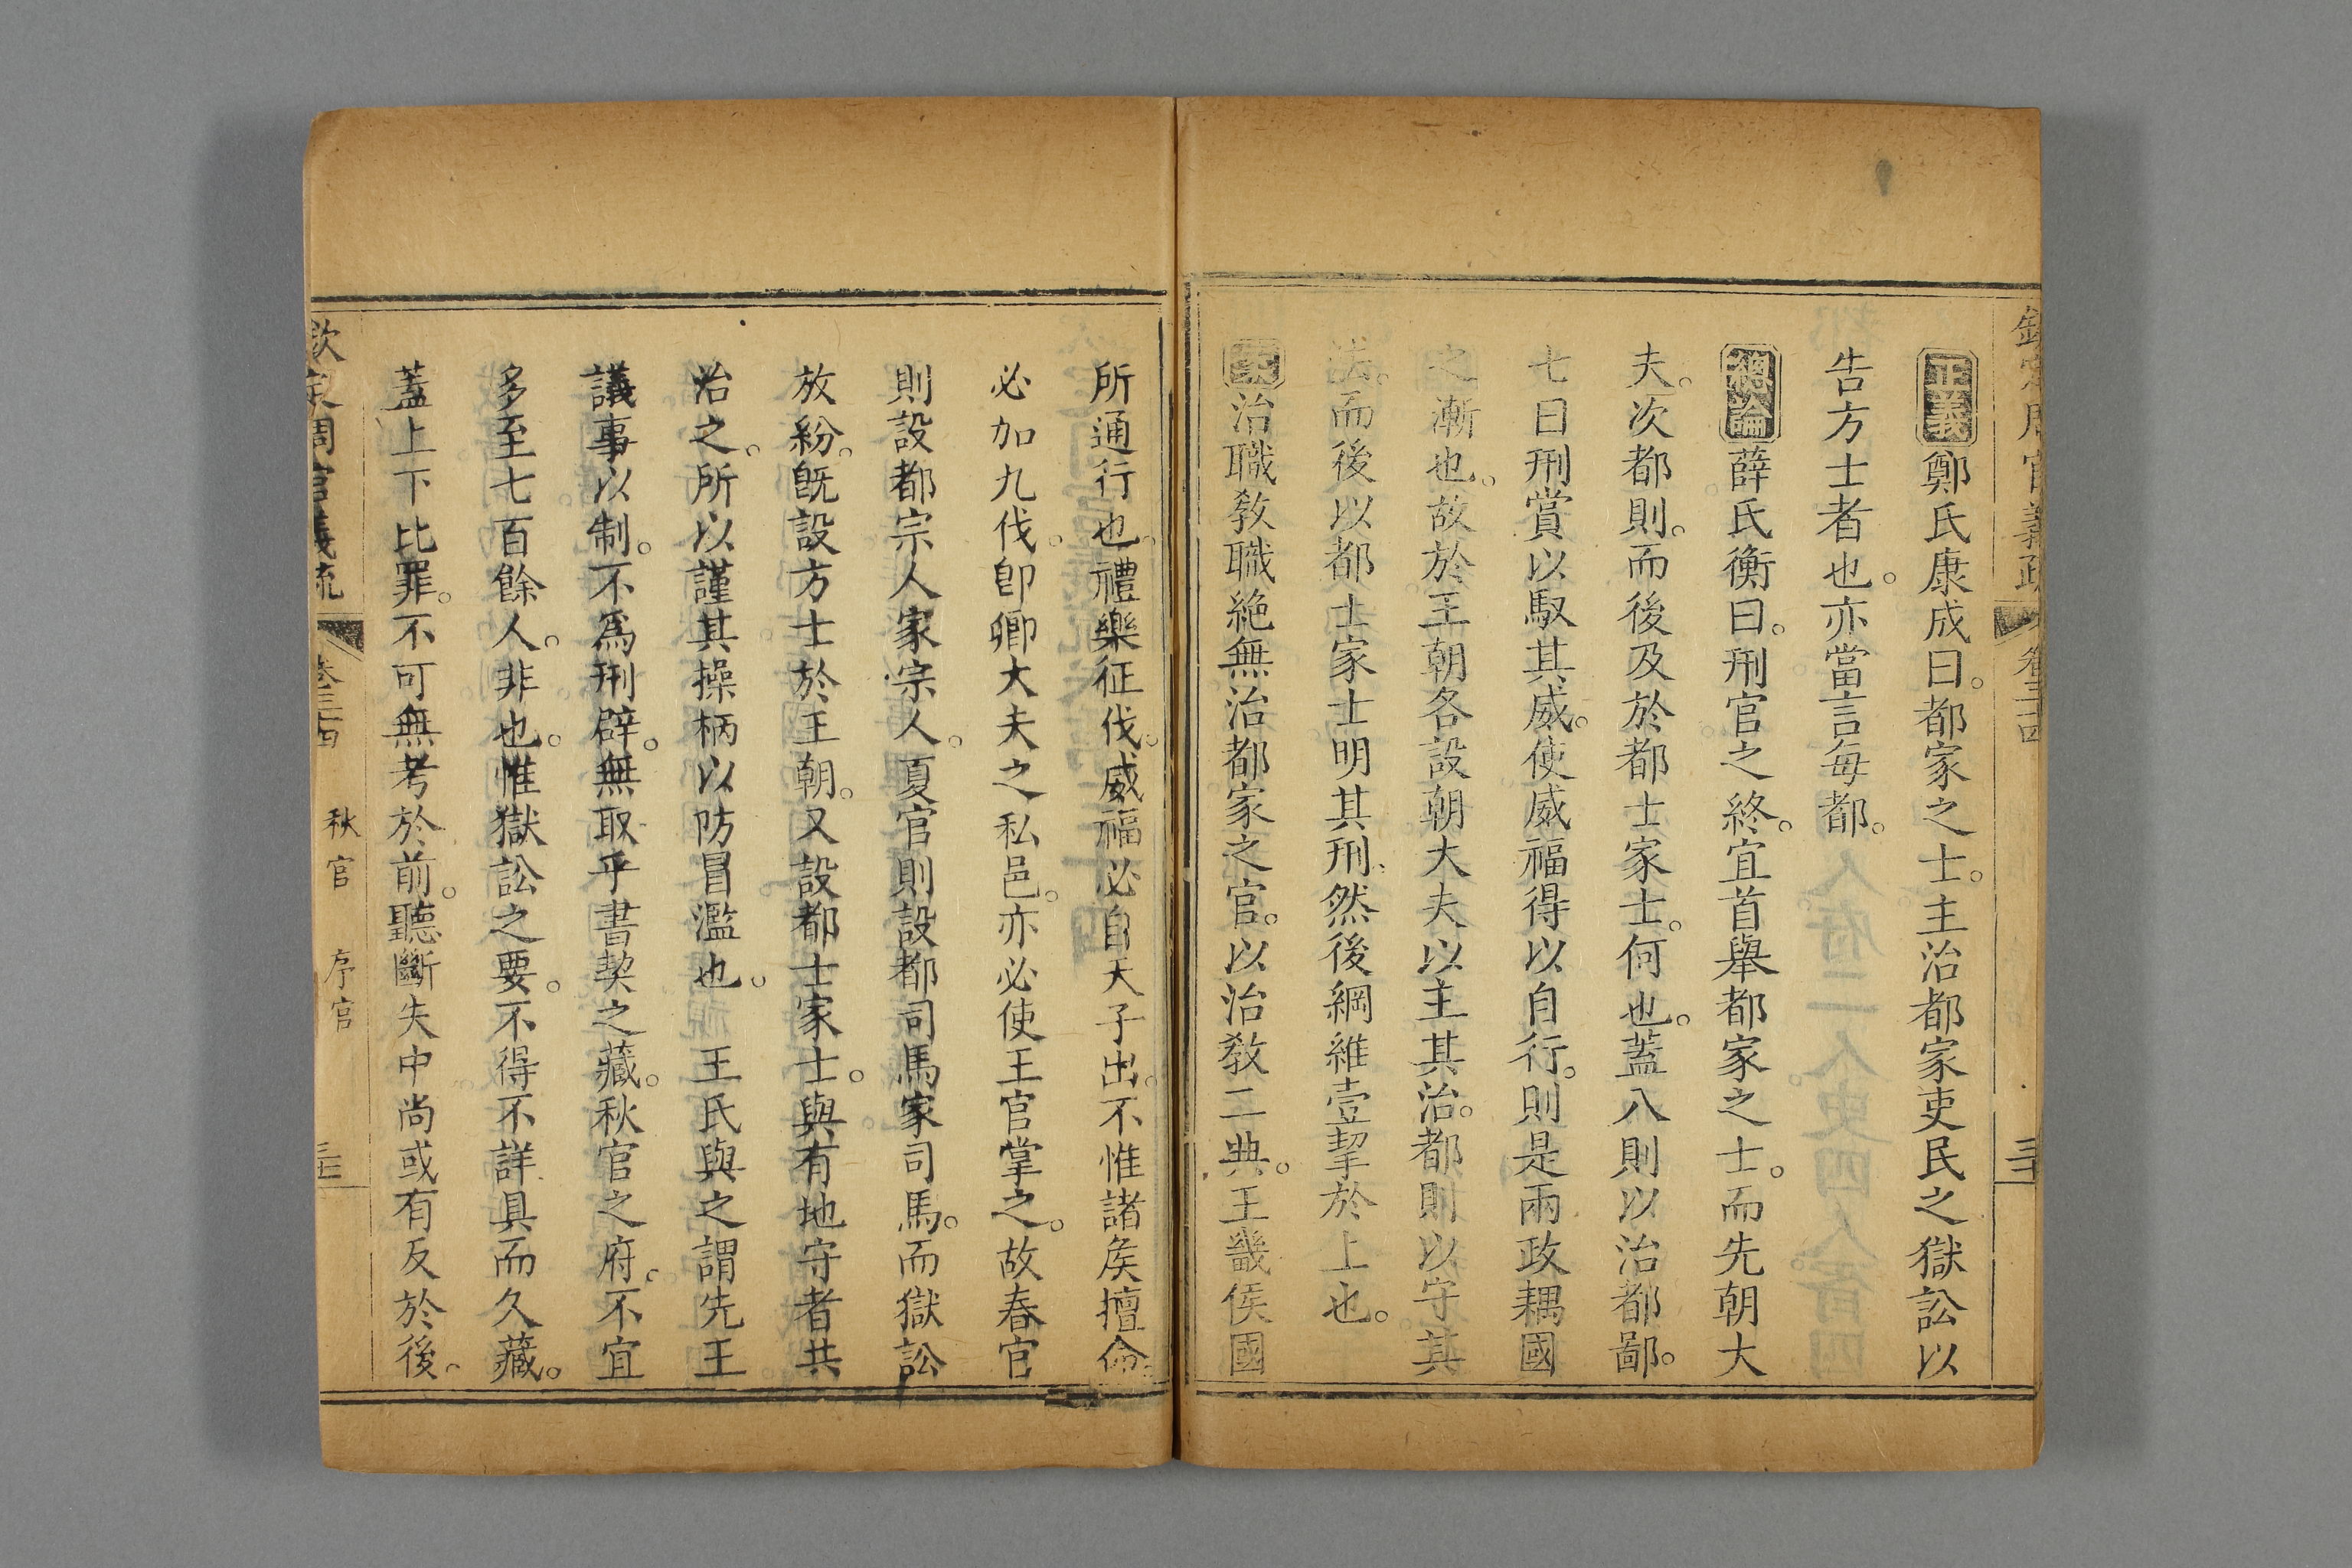 欽定周官義疏 卷三十四
正義鄭氏康成曰。都家之士。主治都家吏民之獄訟以
告方士者也。亦當言每都。
總論薛氏衡曰。刑官之終。宜首舉都家之士。而先朝大
夫。次都則。而後及於都士家士。何也。蓋八則以治都鄙。
七曰刑賞以馭其威。使威福得以自行。則是兩政耦國
之漸也。故於王朝各設朝大夫以主其治。都則以守其
法。而後以都士家士明其刑。然後綱維壹挈於上也。
案治職敎職絶無治都家之官。以治敎二典。王畿侯國
所通行也。禮樂征伐。威福必自天子出。不惟諸矦擅命。
必加九伐。卽卿大夫之私邑。亦必使王官掌之。故春官
則設都宗人家宗人。夏官則設都司馬家司馬。而獄訟
放紛。旣設方士於王朝。又設都士家士。與有地守者共
治之。所以謹其操柄以防冒濫也。 王氏與之謂先王
議事以制。不爲刑辟。無取乎書契之藏。秋官之府。不宜
多至七百餘人。非也。惟獄訟之要。不得不詳具而久藏。
蓋上下比罪。不可無考於前。聽斷失中尚或有反於後。
欽定周官義疏 卷三十四 秋官 序官